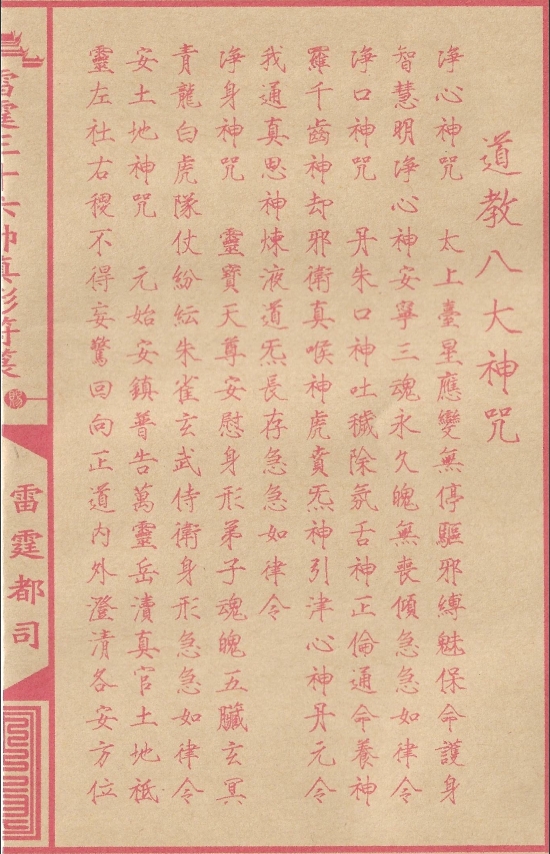 道教八大神咒
淨心神咒 太上臺星應變無停驅邪縛魅保命護身
智慧明淨心神安寧三魂永久魄無喪傾急急如律令
淨口神咒 丹朱口神吐穢除氛舌神正倫通命養神
羅千齒神却邪衛真喉神虎賁炁神引津心神丹元令
我通真思神煉液道炁長存急急如律令
淨身神咒 靈寶天尊安慰身形弟子魂魄五臟玄冥
青龍白虎隊仗紛紜朱雀玄武侍衛身形急急如律令
安土地神咒 元始安鎮普告萬靈岳瀆真官土地祇
靈左社右稷不得妄驚回向正道內外澄清各安方位
雷霆三十六帥真形符箓
雷霆都司